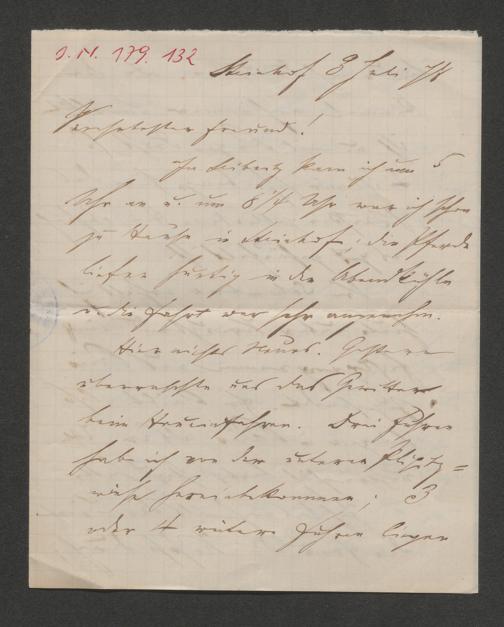 J. N. 179.132
Steinhof 8 Juli 78
Verehrtester Freund!
In Leibnitz kam ich um 5
Uhr an u. um 8 1/4 Uhr war ich schon
zu Hause in Steinhof; die Pferde
liefen hurtig in der Abendkühle
u. die Fahrt war sehr angenehm.
Hier nichts Neues. Gestern
überraschte uns das Gewitter
beim Heueinfahren. Drei Fuhren
habe ich von der unteren
wiese hereinbekommen; 3
oder 4 weitere Fuhren liegen